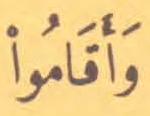 وَأَقَامُواْ